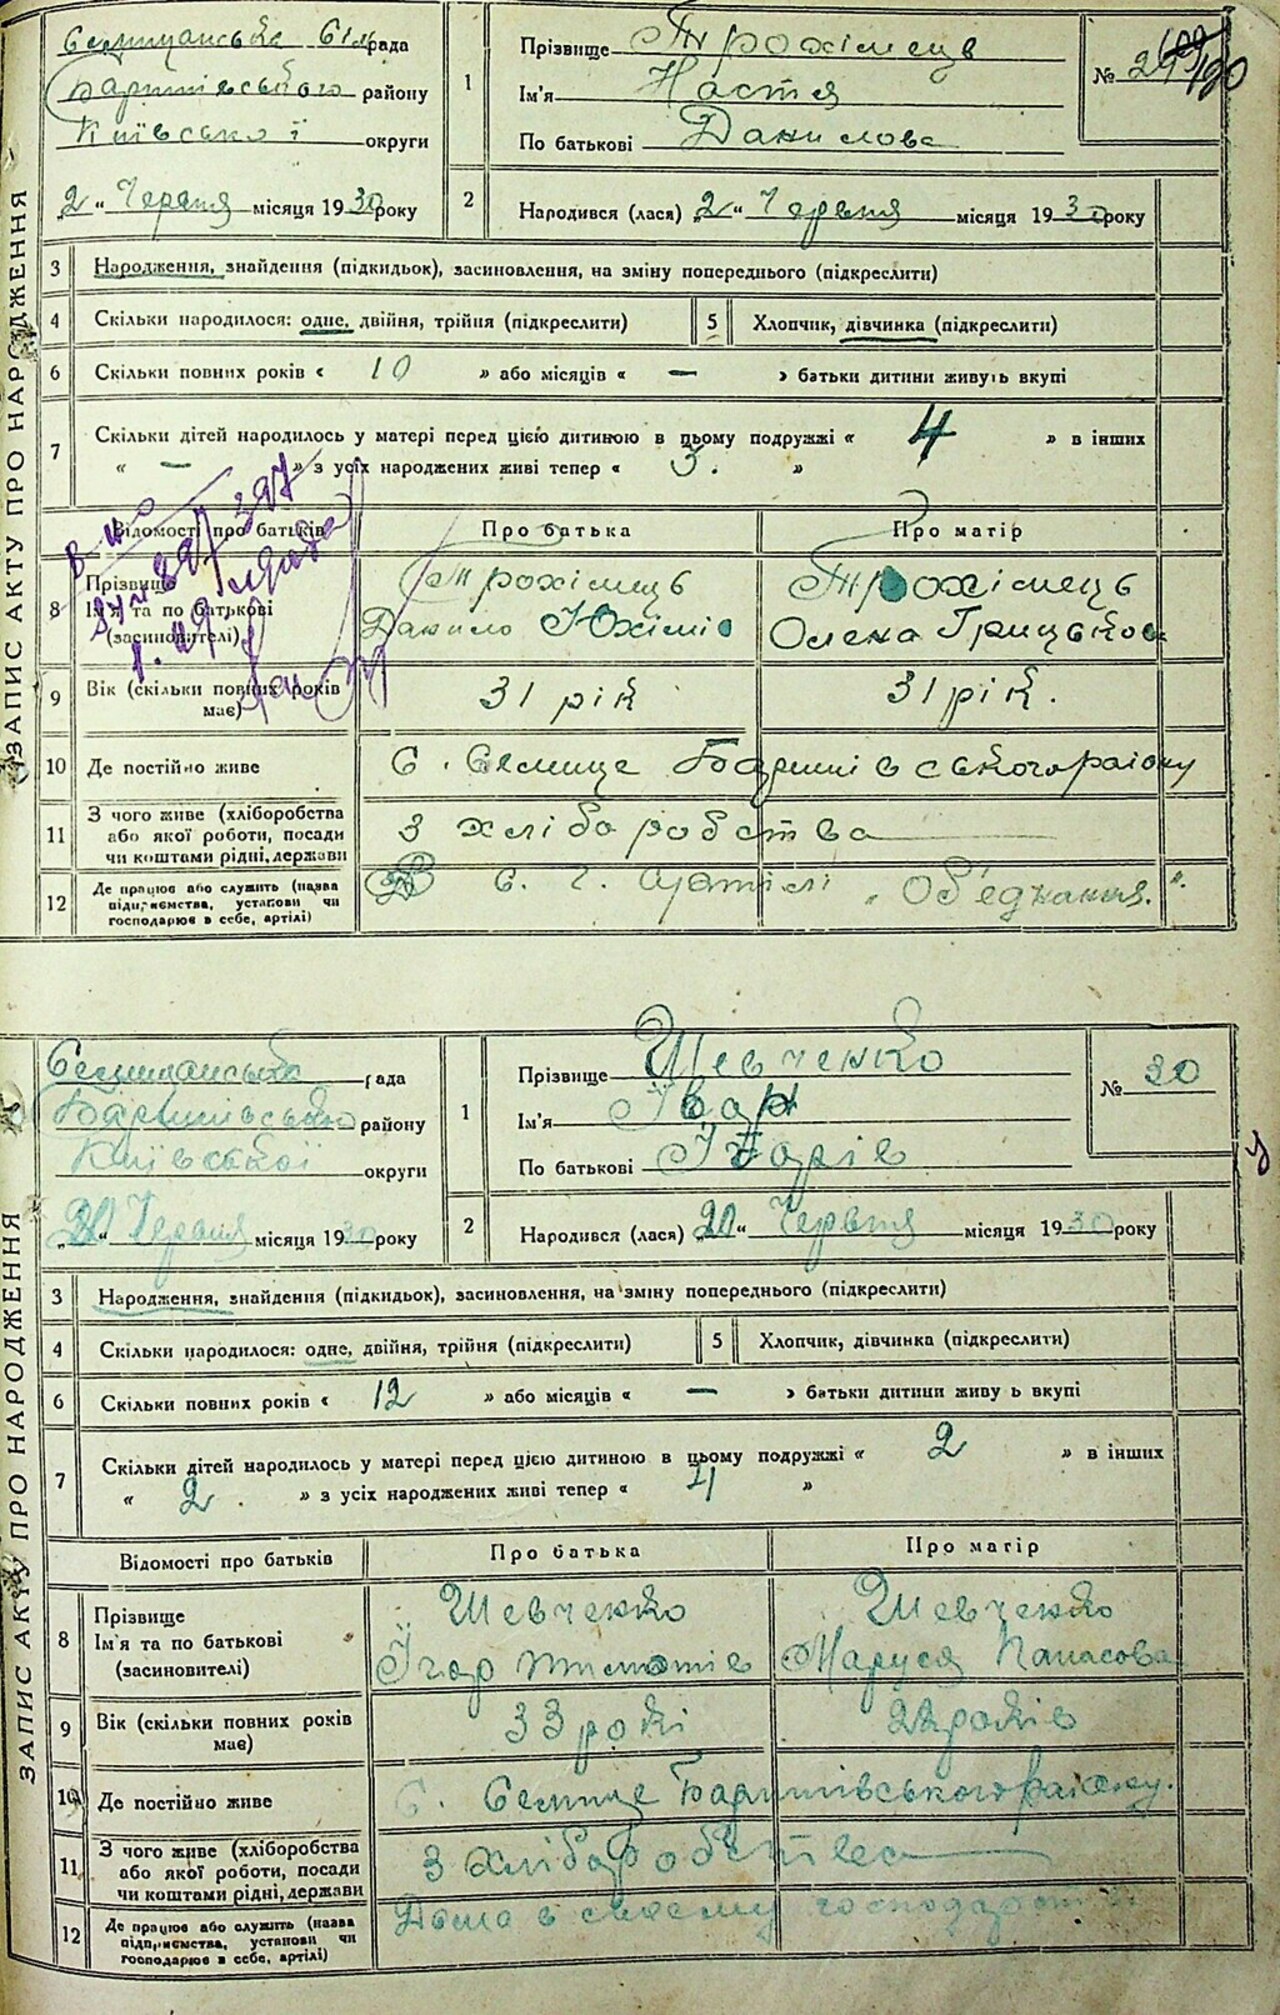 ЗАПИС АКТУ ПРО НАРОДЖЕННЯ
Селищанська сіль рада
Баришівського району
Київської округи
„2“ Червня місяця 1930 року
1
Прізвище Трохімець
Ім'я Настя
По батькові Данилова
№ 29
2
Народився (лася) „2“ Червня місяця 1930 року
3 Народження, знайдення (підкидьок), засиновлення, на зміну попереднього (підкреслити)
4 Скільки народилося: одне, двійня, трійня (підкреслити)
5 Хлопчик, дівчинка (підкреслити)
6 Скільки повних років « 10 » або місяців « — » батьки дитини живуть вкупі
7 Скільки дітей народилось у матері перед цією дитиною в цьому подружжі « 4 » в інших
« — » з усіх народжених живі тепер « 3. »
Відомості про батьків Про батька Про матір
8 Прізвище Трохімець Трохімець
Ім'я та по батькові Данило Юхімів Олена Грицькова
(засиновителі)
9 Вік (скільки повних років має) 31 рік 31 рік.
10 Де постійно живе С. Селище Баришівського району
11 З чого живе (хліборобства
або якої роботи, посади
чи коштами рідні, держави З хліборобства
12 Де працює або служить (назва
підприємства, установи чи
господарює в себе, артілі) С. г. артілі „Об'єднання."
ЗАПИС АКТУ ПРО НАРОДЖЕННЯ
Селищанська рада
Баришівського району
Київської округи
Червня місяця 1930 року
1
Прізвище Шевченко
Ім'я Іван
По батькові
№ 30
2
Народився (лася) „20“ Червня місяця 1930 року
3 Народження, знайдення (підкидьок), засиновлення, на зміну попереднього (підкреслити)
4 Скільки народилося: одне, двійня, трійня (підкреслити)
5 Хлопчик, дівчинка (підкреслити)
6 Скільки повних років « 12 » або місяців « — » батьки дитини живу ь вкупі
7 Скільки дітей народилось у матері перед цією дитиною в цьому подружжі « 2 » в інших
« 2. » з усіх народжених живі тепер « 4 »
Відомості про батьків Про батька Про матір
8 Прізвище Шевченко Шевченко
Ім'я та по батькові Ігор Тимотів Маруся Панасова
(засиновителі)
9 Вік (скільки повних років має) 33 роки 22 років
10 Де постійно живе С. Селище Баришівського району.
11 З чого живе (хліборобства
або якої роботи, посади
чи коштами рідні, держави З хліборобства
12 Де працює або служить (назва
підприємства, установи чи
господарює в себе, артілі) Дома в своєму господарстві